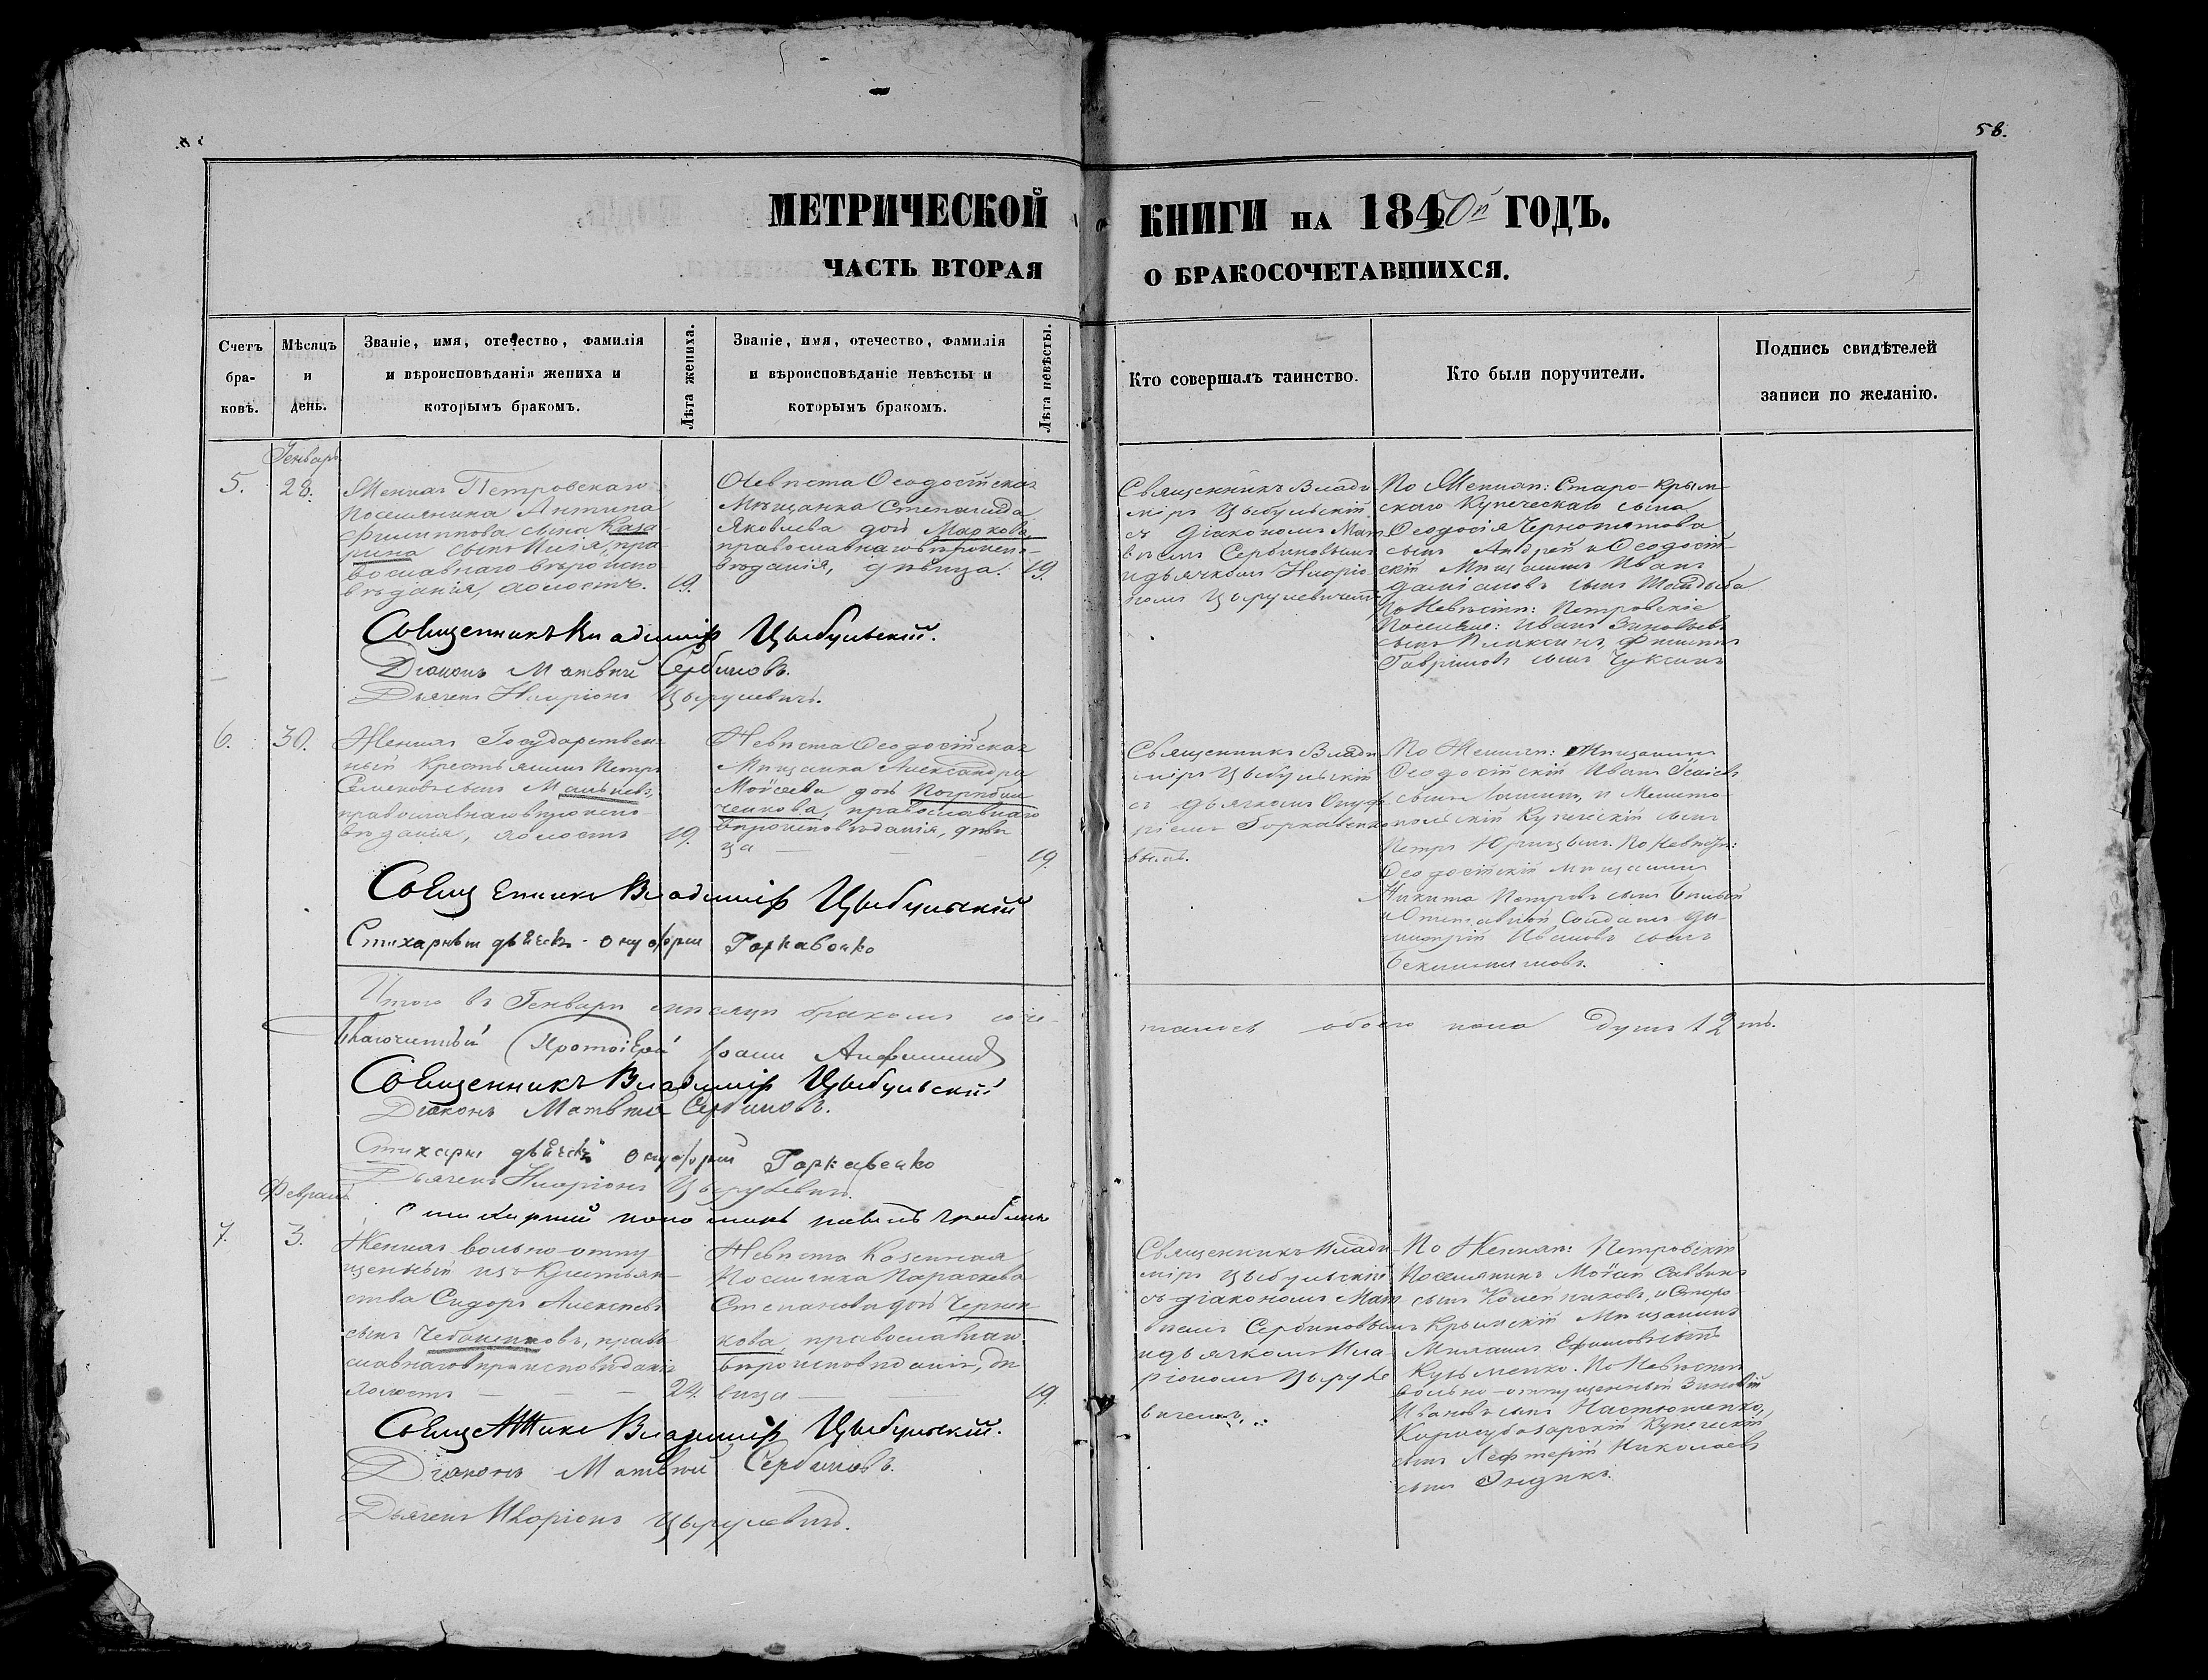 58.
МЕТРИЧЕСКОЙ КНИГИ НА 1850й ГОДЪ.
ЧАСТЬ ВТОРАЯ О БРАКОСОЧЕТАВШИХСЯ.
Счетъ браковъ.
Мѣсяцъ и день.
Званіе, имя, отечество, фамилія
и вѣроисповѣданія жениха и
которымъ бракомъ.
Лѣта жениха.
Званіе, имя, отечество, фамилія
и вѣроисповѣданіе невѣсты и
которымъ бракомъ.
Лѣта невѣсты.
Кто совершалъ таинство.
Кто были поручители.
Подпись свидѣтелей
записи по желанію.
Генварь
5.
28.
Женихъ Петровскаго
Поселянина Антипа
Филиппова сына Каза-
рина сынъ Илія, пра-
вославнаго вѣроиспо
вѣданія, холостъ.
19.
Невѣста Ѳеодосійская
Мѣщанка Степанида
Яковлева дочь Маркова,
православнаго вѣроиспо-
вѣданія, дѣвица.
19.
Священникъ Влади
міръ Цыбульскій
съ Діакономъ Мат
вѣемъ Сербиновымъ
и дьячкомъ Иларіо
номъ Цырулевичемъ
По Женихѣ: Старо-Крым
скаго Купеческаго сына
Ѳеодосія Чернопятова
сынъ Андрей и Ѳеодосій-
скій Мѣщанинъ Иванъ
сынъ
По Невѣстѣ: Петровскіе
Поселяне: Иванъ Зиновьевъ
сынъ Плаксинъ, Филиппъ
Гавріиловъ сынъ Чуксинъ
Священникъ Владиміръ Цыбульскій.
Діаконъ Матвѣй Сербиновъ.
Дьячекъ Иларіонъ Цырулевичъ.
6.
30.
Женихъ Государствен
ный Крестьянинъ Петръ
Семеновъ сынъ Мальцевъ,
православнаго вѣроиспо-
вѣданія, холостъ
19.
Невѣста Ѳеодосійская
Мѣщанка Александра
Моисеева дочь Погребни
ченкова, православнаго
вѣроисповѣданія, дѣви
ца
19.
Священникъ Влади
міръ Цыбульскій
съ дьячкомъ Онуф
ріемъ Горкавенко
вымъ.
По Женихѣ: Мѣщанинъ
Ѳеодосійскій Иванъ
сынъ и Мелито
польскій Купеческій сынъ
Петръ По Невѣстѣ:
Ѳеодосійскій мѣщанинъ
Никита Петровъ сынъ
и Отставной Солдатъ Ди-
митрій Ивановъ сынъ
Священникъ Владиміръ Цыбульскій
Стихарный дьячекъ Онуфрій Горкавенко
Итого въ Генварѣ мѣсяцѣ бракомъ соче-
талось обоего пола душъ 12ть.
Благочинный Протоіерей Іоаннъ
Священникъ Владиміръ Цыбульскій
Діаконъ Матвѣй Сербиновъ.
Стихарн дьячекъ Онуфрій Горкавенко
Дьячекъ Иларіонъ Цырулевичъ.
Стихарный пономарь Павелъ
Февраль
7.
3.
Женихъ вольно-отпу
щенный изъ Крестьян-
ства Сидоръ Алексѣевъ
сынъ Чебаненковъ, право
славнаго вѣроисповѣданія
холостъ
24.
Невѣста Казенная
Поселянка Параскева
Степанова дочь Черни-
кова, православнаго
вѣроисповѣданія, дѣ
вица
19.
Священникъ Влади
міръ Цыбульскій
съ діакономъ Мат
вѣемъ Сербиновымъ
и дьячкомъ Ила
ріономъ Цыруле
вичемъ.
По Женихѣ: Петровскій
Поселянинъ Моисей Саввинъ
сынъ Колесниковъ, и Старо
Крымскій Мѣщанинъ
Ефимовъ сынъ
Кузьменко. По Невѣстѣ
вольно-отпущенный Зиновій
Ивановъ сынъ Настюшенко,
Карасубазарскій Купеческій
сынъ Лефтерій Николаевъ
сынъ
Священникъ Владиміръ Цыбульскій.
Діаконъ Матвѣй Сербиновъ.
Дьячекъ Иларіонъ Цырулевичъ.